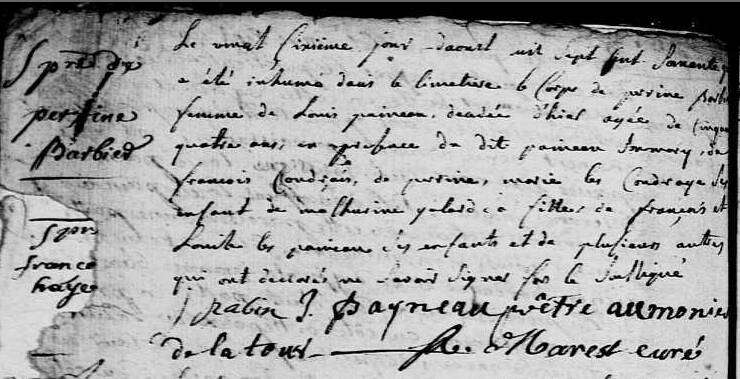 Spre de
perrine
Barbier
Le vingt sixieme jour daoust mil sept cent Soixante
a été inhumé dans le cimetiere le Corps de perine Barbi
femme de Louis paineau, décédée d'hier agée de Cinqua
quatre ans, en presence du dit paineau Son mary, de
francois Coudrais, de perrine, marie les Coudrays Ses
enfant de mathurine galard à fille de françois et
Louise les paineau ses enfants et de plusieurs autres
qui ont déclaré ne Savoir Signer fors le Soussigné
rabin J. Payneau prêtre aumonier
de la tour Marest curé
Spre
france
haye